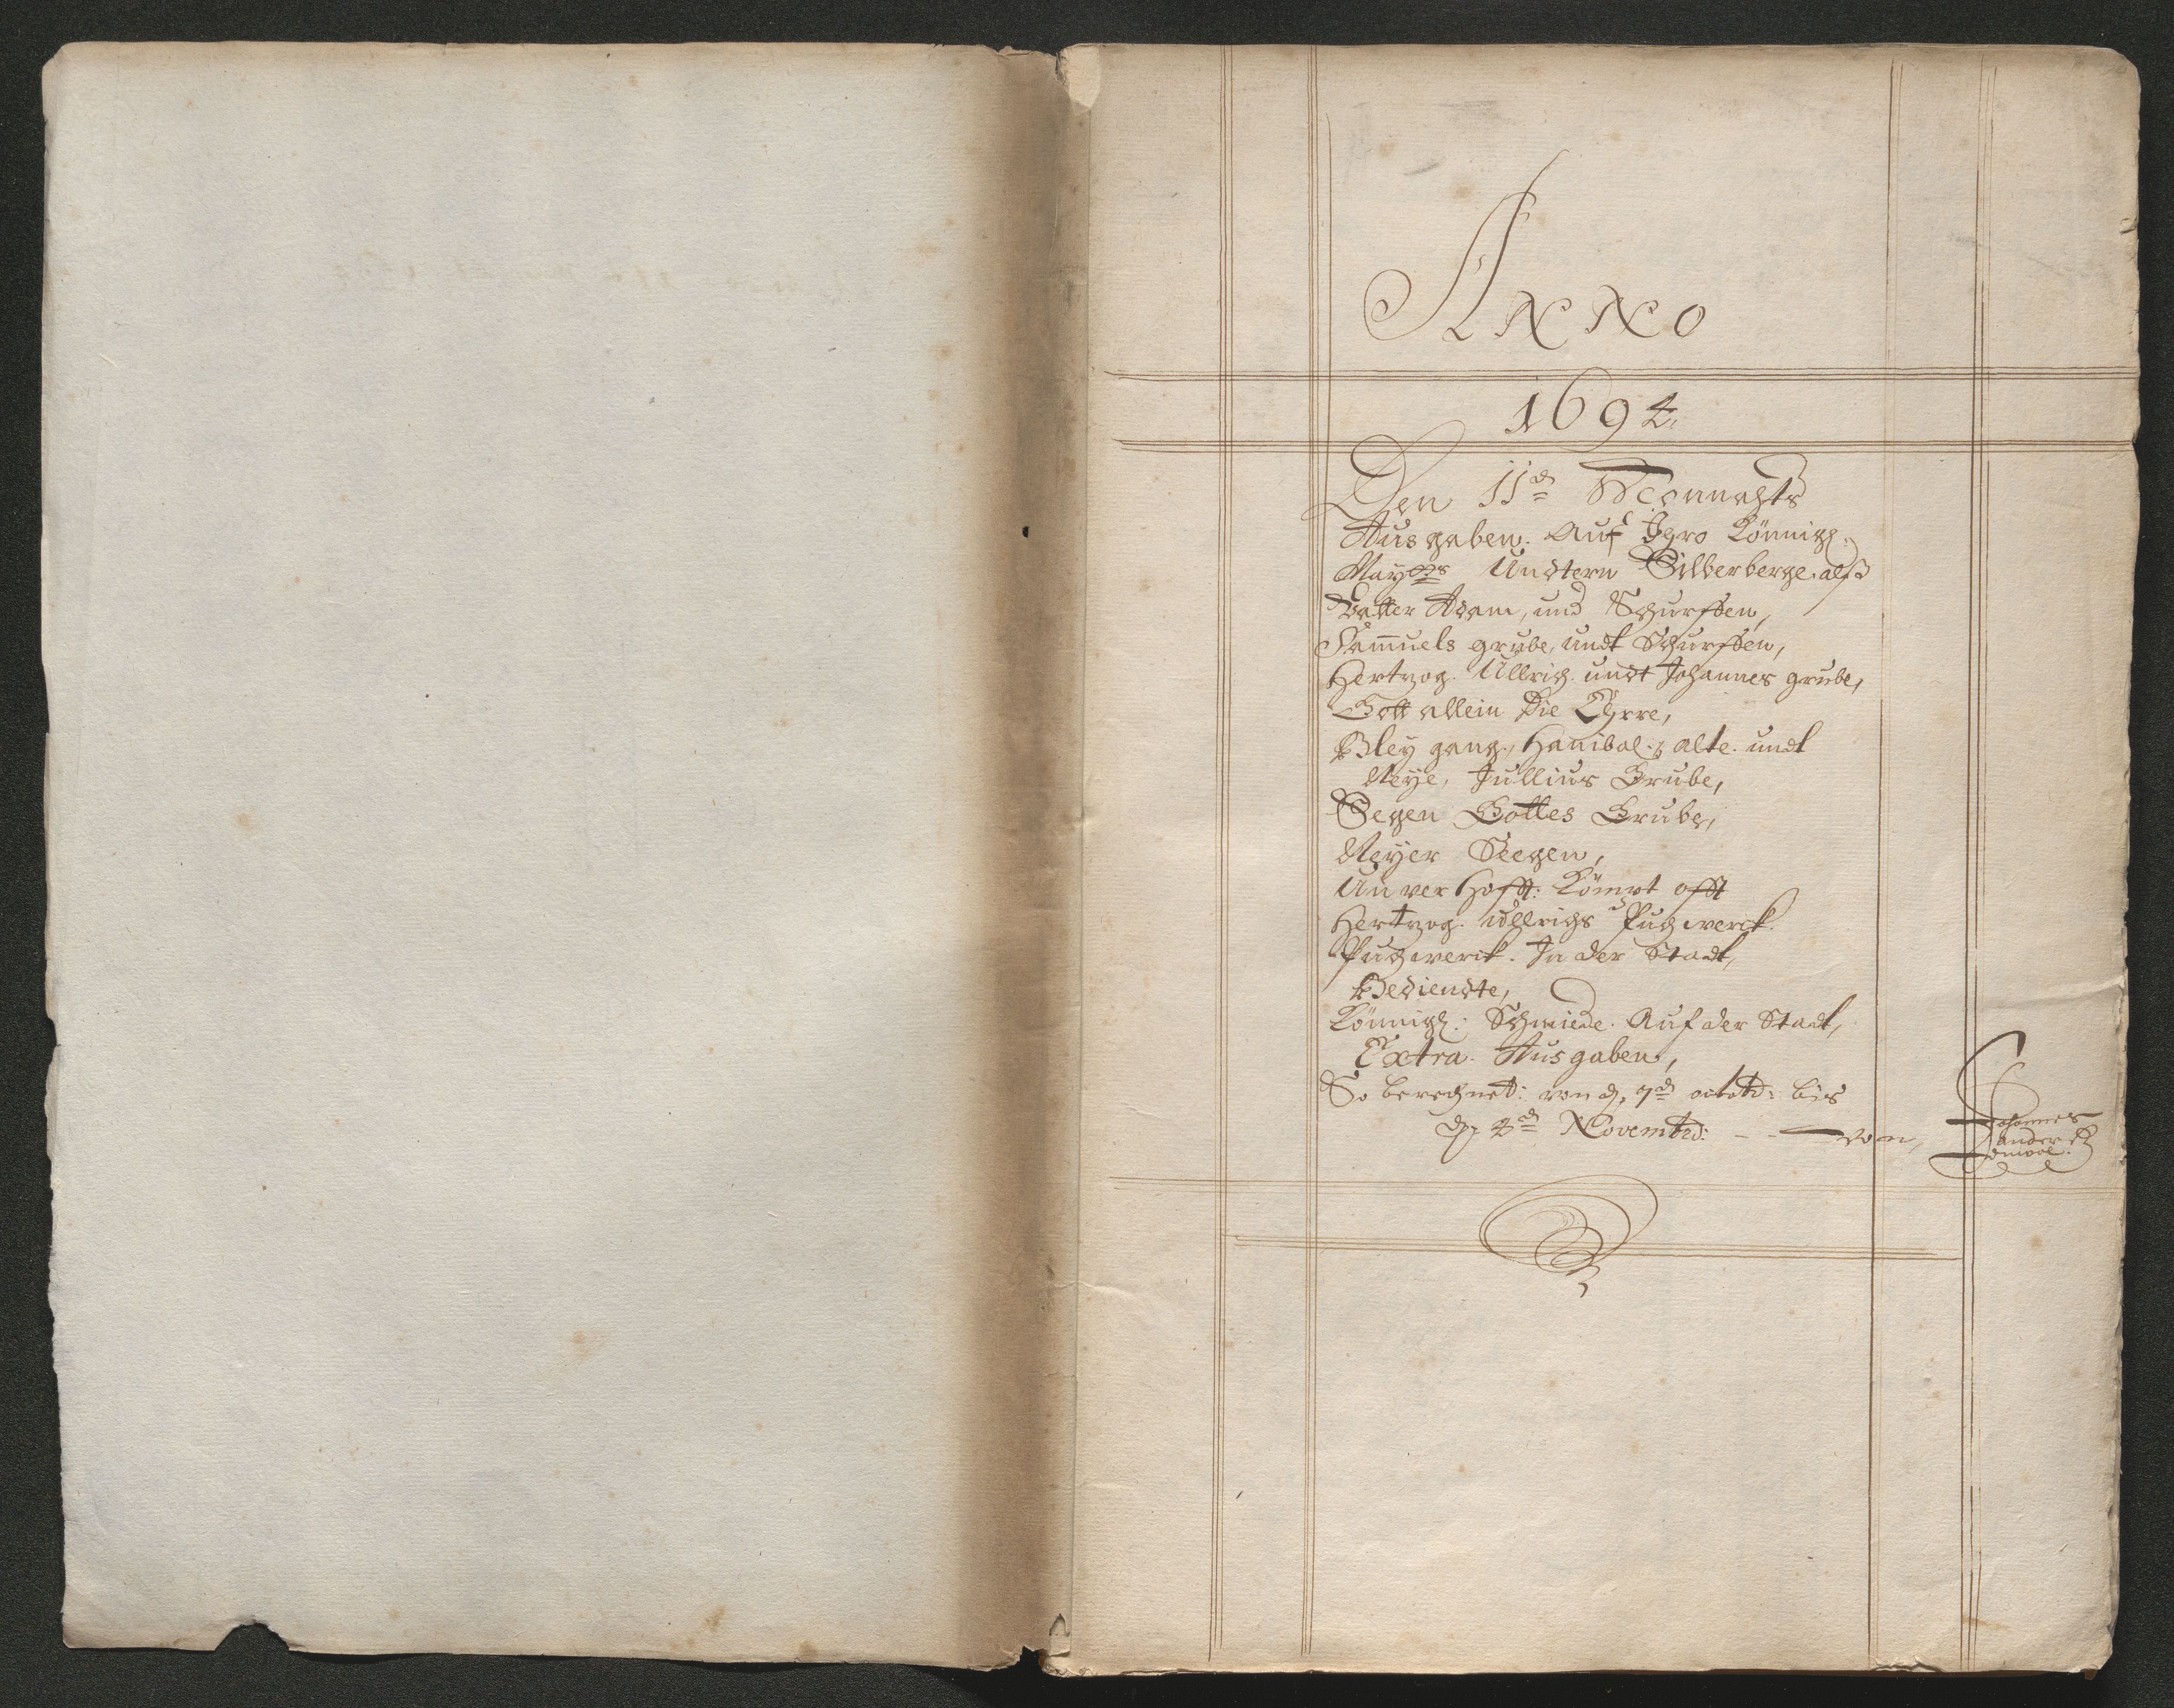 Anno
1694.
Den 11d Weonnahts
Ausgaben. Auf Ihro Könnigl:
Maytts Undtern Silberberge. alß
Vatter Adam, und Schurffen,
Samuels grube, undt Schurffen,
Hertzog. Ullrich. undt Johannes grube,
Gott allein Die Ehrre,
Bley gang, Hanibal. alte. undt
Neye, Jullius Grube,
Segen Gottes Grube,
Neyer Seegen,
Unverhofft: Kömpt offt
Hertzog. ullrichs Puchwerck.
Puchwerck. In der Stadt,
Bediendte,
Könnigl: Schmiede. Auf der Stadt,
Extra. Ausgaben,
So berechnet: von d. 7d octobr: bis
d. 3d Novembr: - - von,
Johannes
Sander